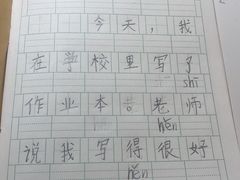 今天，我
在学校里写了
shī
作业本。老师
hěn
说我写得很好
hěn